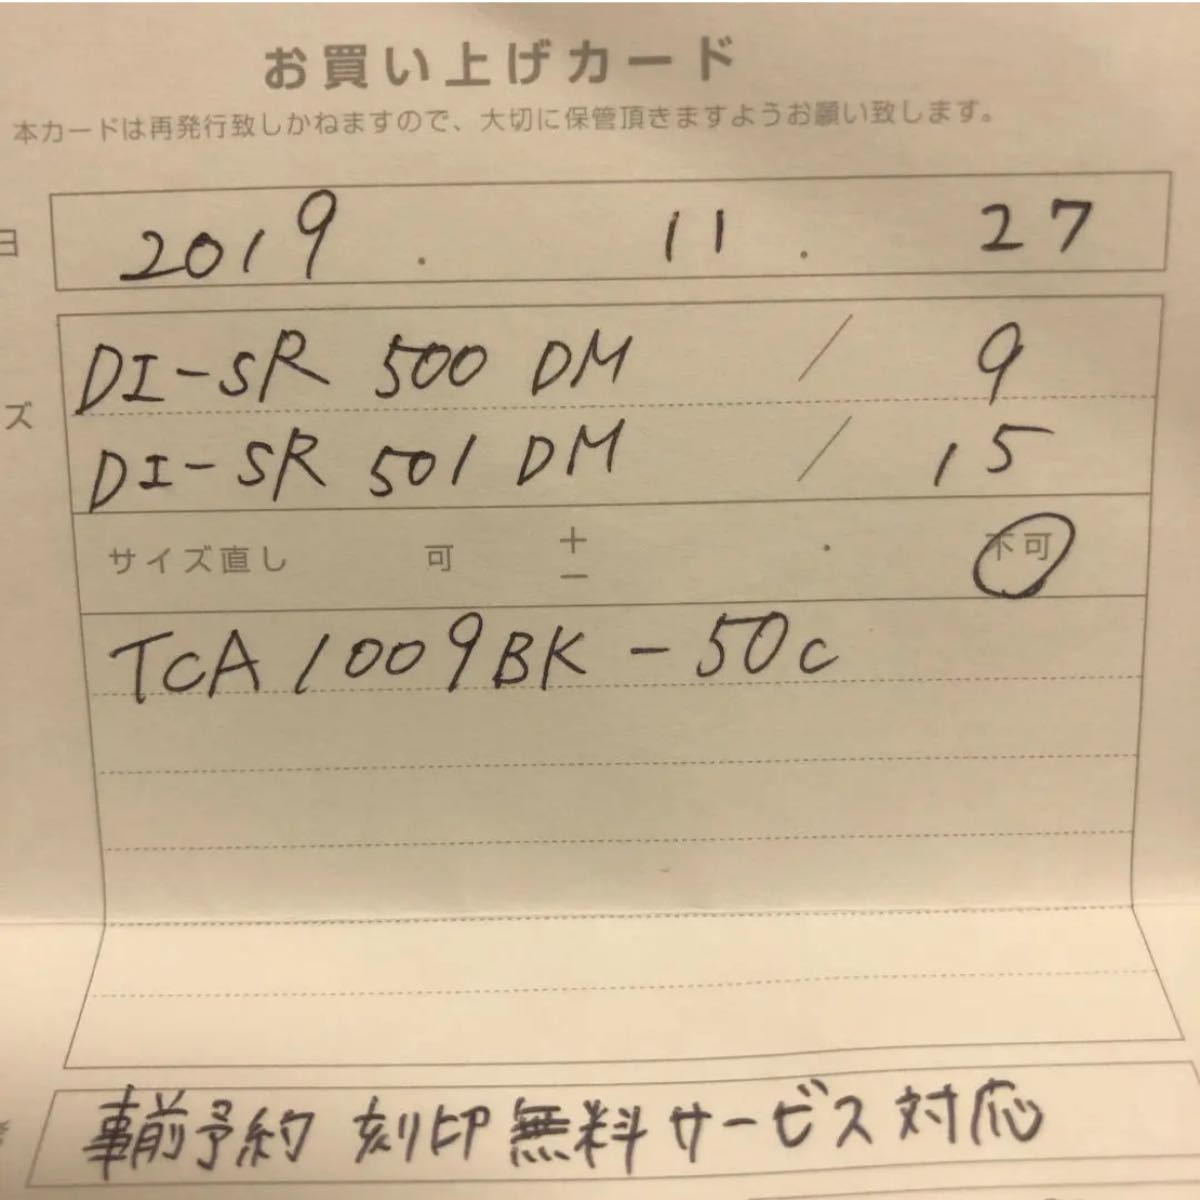 お買い上げカード
本カードは再発行致しかねますので、大切に保管頂きますようお願い致します。
日 2019 . 11 . 27
DI-SR 500 DM / 9
ズ
DI-SR 501 DM / 15
サイズ直し 可 + − . 不可
TCA1009BK-50c
事前予約 刻印無料サービス対応